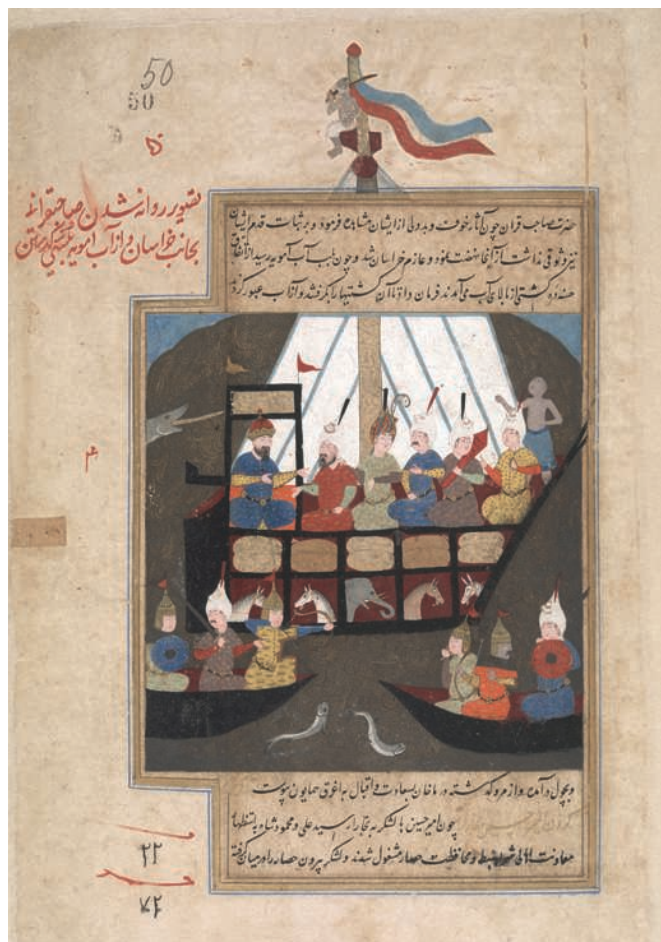 50
50
تصویر روانه شدن صاحبقران
بجانب خراسان و از آب امویه بکشتی گذشتن
حضرت صاحب قران چون آثار خوف و بددلی از ایشان مشاهده فرمود و بر ثبات قدم ایشان
نیز وثوقی نداشت از آنجا نهضت نمود و عازم خراسان شد و چون بلب آب آمویه رسید از اتفاق
هفده کشتی از بالای آب می آمدند فرمان داد تا آن کشتیها را بگرفتند و از آب عبور کرد
۴
و بچول درآمد و از مرو گذشته در ماخان بسعادت و اقبال به اغروق همایون پیوست
چون امیر حسین با لشکر به بخارا رسید علی و محمود شاه باستظهار
معاونت اهالی شهر بضبط و محافظت حصار مشغول شدند و لشکر بیرون حصار را در میان گرفته
۲۲